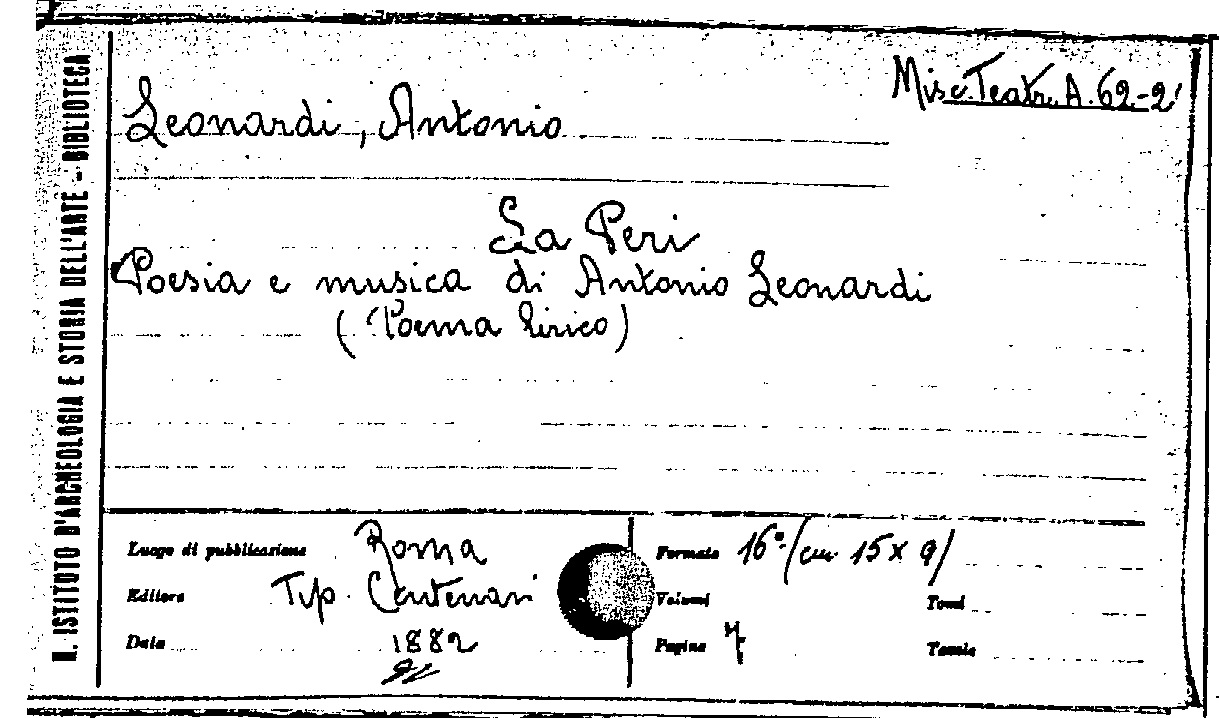 Misc. Teatr. A. 62-2
Leonardi, Antonio
La Peri
Poesia e musica di Antonio Leonardi
(Poema lirico)
R. ISTITUTO D'ARCHEOLOGIA E STORIA DELL'ARTE - BIBLIOTECA
Luogo di pubblicazione Roma
Editore Tip. Centenari
Data 1882
Formato 16° (cm. 15 x 9)
Volumi Tomi
Pagine 7 Tavole